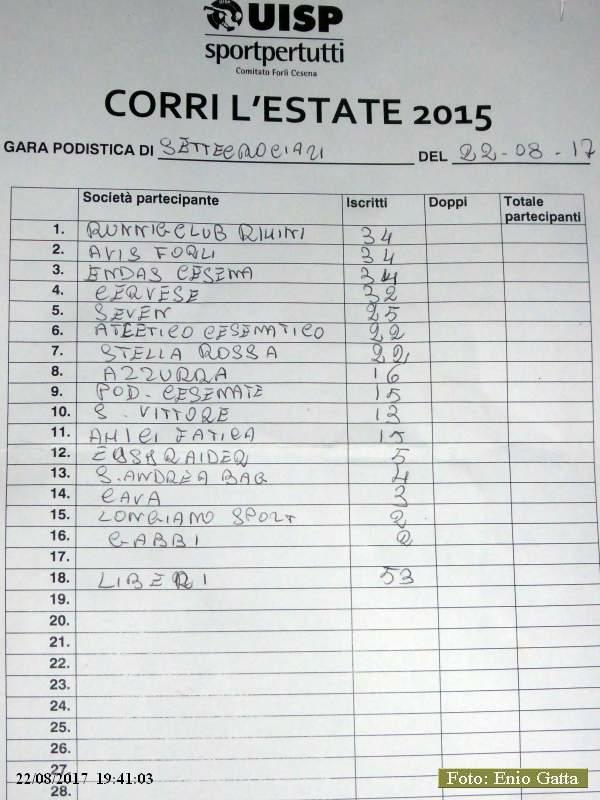 UISP
sportpertutti
Comitato Forlì Cesena
CORRI L'ESTATE 2015
GARA PODISTICA DI SETTECROCIARI DEL 22-08-17
Società partecipante Iscritti Doppi Totale partecipanti
1. RUNNIGCLUB RIMINI 34
2. AVIS FORLI 34
3. ENDAS CESENA 34
4. CERVESE 32
5. SEVEN 25
6. ATLETICO CESENATICO 22
7. STELLA ROSSA 22
8. AZZURRA 16
9. POD. CESENATE 15
10. S. VITTORE 13
11. AMICI FATICA 15
12. 5
13. S. ANDREA BAG 4
14. CAVA 3
15. LONGIANO SPORT 2
16. GABBI 2
17.
18. LIBERI 53
19.
20.
21.
22.
23.
24.
25.
26.
27
28.
22/08/2017 19:41:03
Foto: Enio Gatta